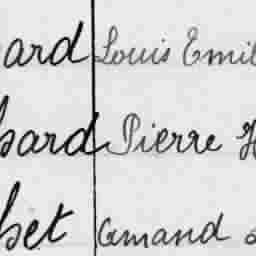 ard Louis Emil
sard Pierre H
bet Amand